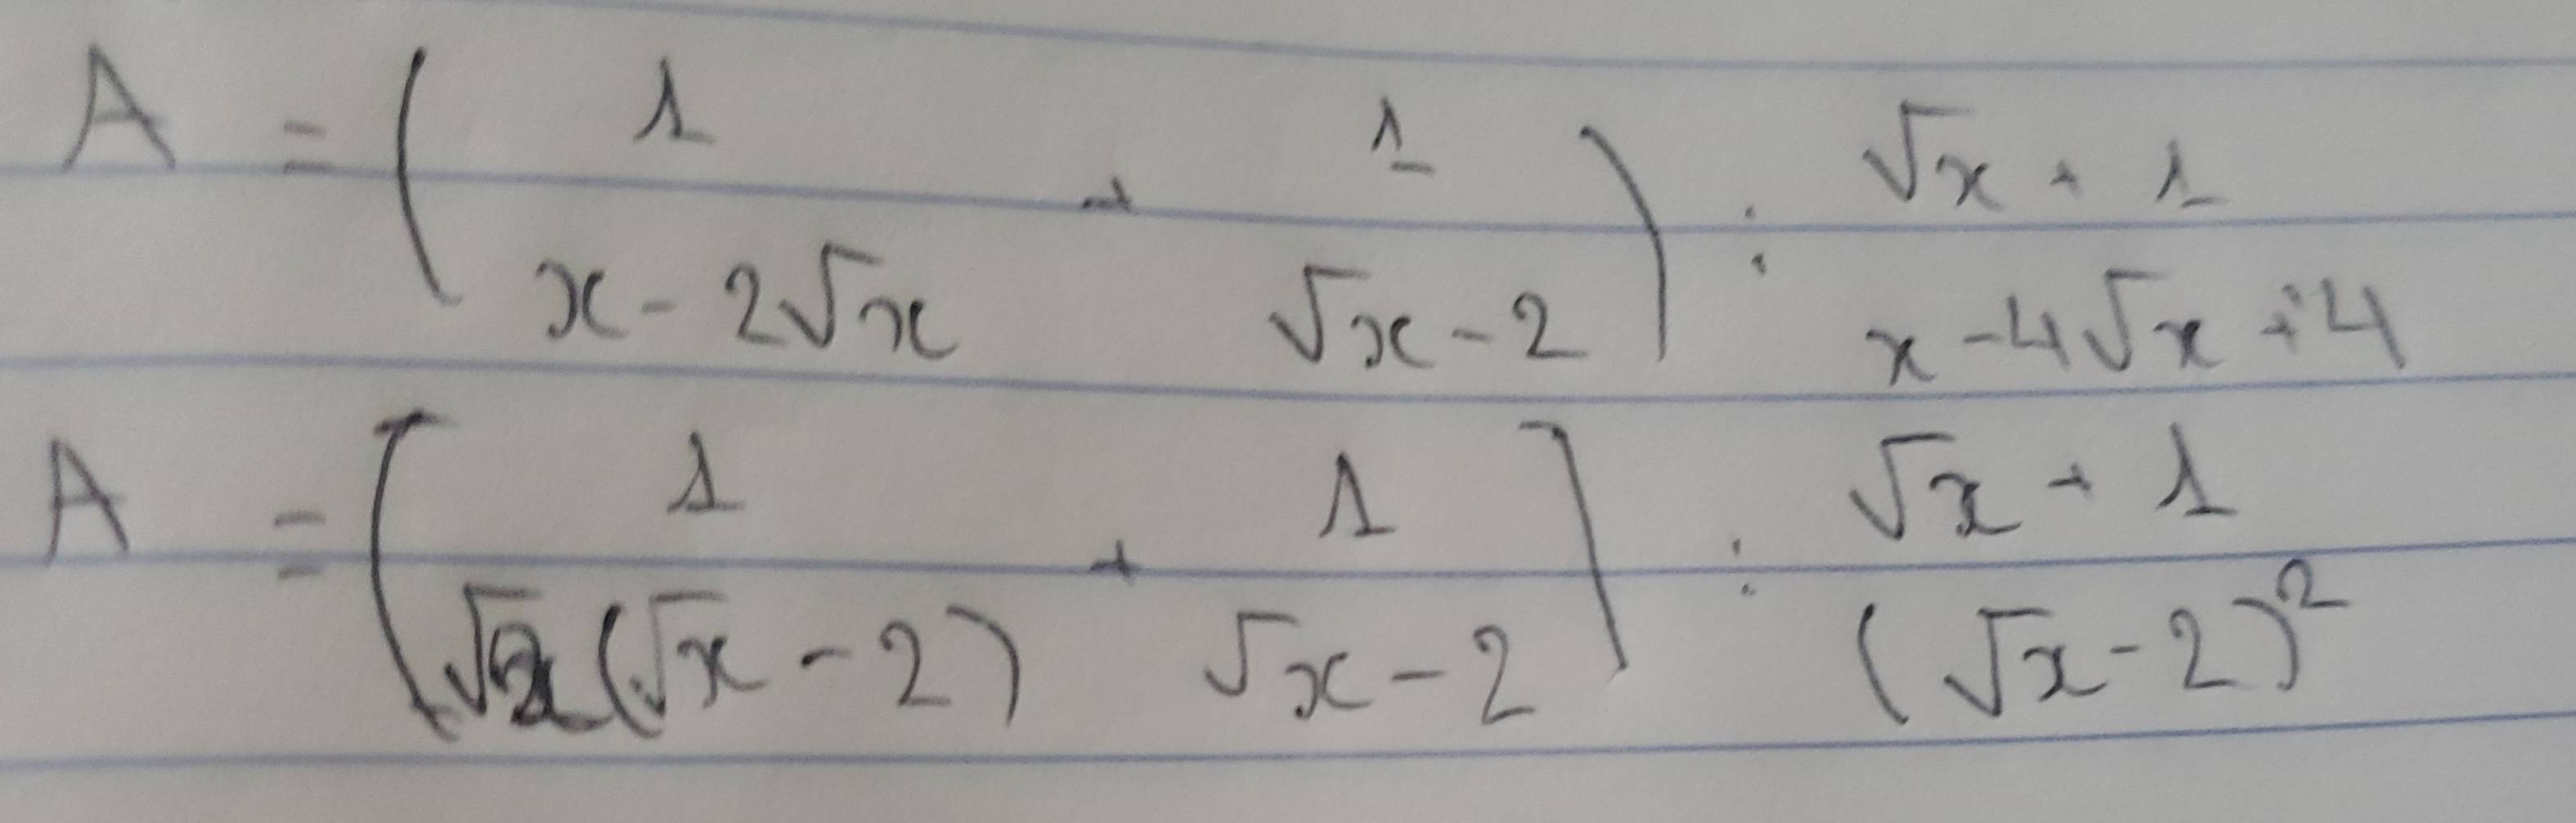 A = ( 1 / (x - 2√x) + 1 / (√x - 2) ) : (√x + 1) / (x - 4√x + 4)
A = [ 1 / (√x (√x - 2)) + 1 / (√x - 2) ] : (√x + 1) / (√x - 2)²